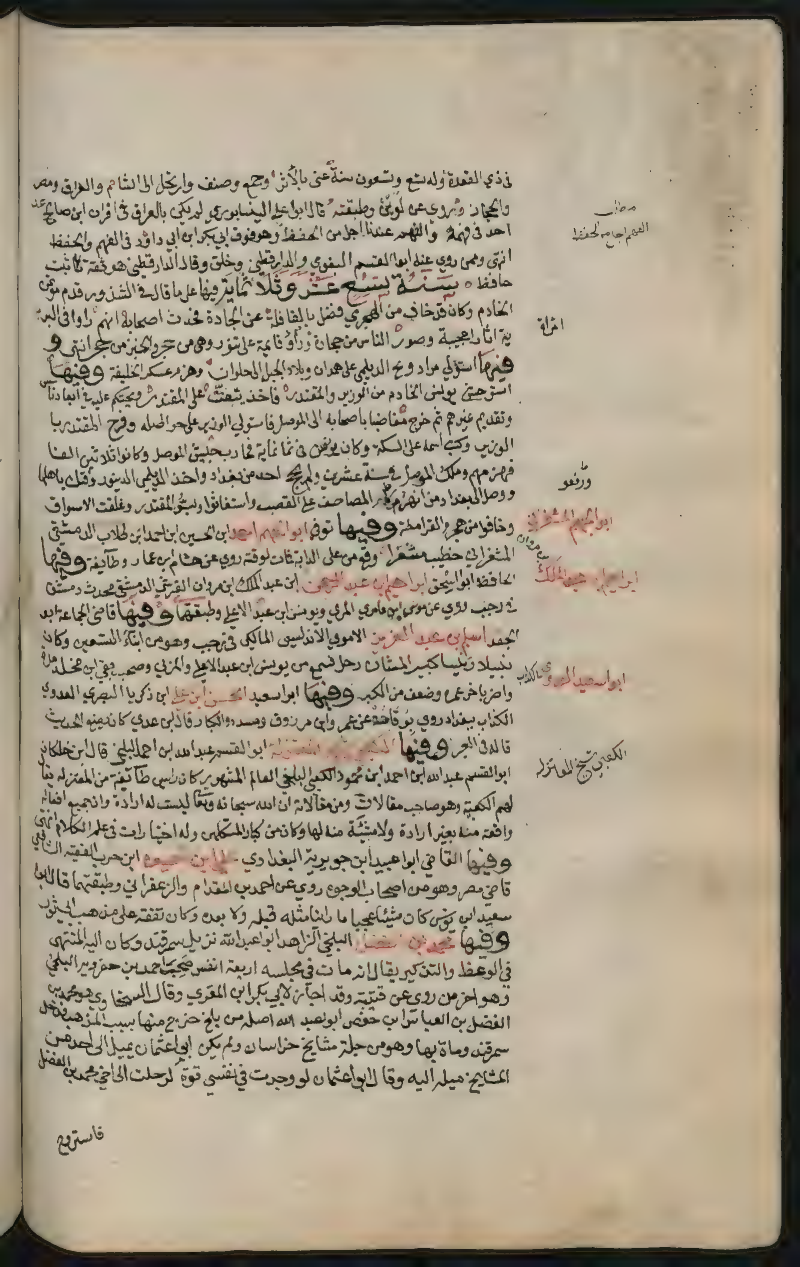 في ذي القعدة وله تسع وتسعون سنة عني بالأثر وجمع وصنف وارتحل الى الشام والعراق ومصر
والحجاز وروي عن لوين وطبقته قال ابو علي النيسابوري لم يكن بالعراق في اقران ابن صاعد
احد في فهمه والفهم عندنا اجل من الحفظ وهو فوق ابي بكر ابن ابي داود في الفهم والحفظ
انتهى وممن روي عنه ابو القسم البغوي والدارقطني وخلق وقال الدارقطني هو ثقة ثبت
حافظ سنة تسع عشر وثلاثماية فيها على ما قال في الشذور قدم مونس
الخادم وكان قد خاف من الهجري فضل بالقافلة عن الجادة فحدث اصحابه انهم راوا في البر
ية اثارا عجيبة وصور الناس من حجارة وراو قايمة على تنور وهي من حجر والخبز من حجر انتهى و
فيها استولي مرداويج الديلمي على همدان وبلاد الجبل الى حلوان وهزم عسكر الخليفة وفيها
استوحش يونس الخادم من الوزير والمقتدر فاخذ يتعنت على المقتدر ويحتكم عليه في ابعاد ناس
وتقديم غيرهم ثم خرج مغاضبا باصحابه الى الموصل فاستولي الوزير على حواصله وفرح المقتدر با
الوزير وكتب اسمه على السكة وكان يونس في ثما نماية فحارب جيش الموصل وكانوا ثلاثين الفا
فهزمهم وملك الموصل في سنة عشرين ولم يحج احد من بغداد واخذ الديلمي الدينور وفتك باهلها
ووصل الى بغداد من انهزم المصاحف على القصب واستغاثوا وسبوا المقتدر وغلقت الاسواق
وخافوا من هجوم القرامطة وفيها توفي ابو الجهم احمد ابن الحسين ابن احمد ابن طلاب الدمشقي
المشغراني خطيب مشغرا وقع من على الدابة فمات لوقته روي عن هشام ابن عمار وطائفة وفيها
الحافظ ابو اسحق ابراهيم ابن عبد الرحمن ابن عبد الملك ابن مروان القرشي الدمشقي محدث دمشق
في رجب روي عن موسى ابن عامر المري ويونس ابن عبد الاعلى وطبقتهما وفيها قاضي الجماعة ابو
الجعد اسلم بن عبد العزيز الاموي الاندلسي المالكي في رجب وهو من ابناء التسعين وكان
نبيلا رئيسا كبير الشان رحل فسمع من يونس ابن عبد الاعلى والمزني وصحب بقي ابن مخلد مدة
واضر باخر عمره وضعف من الكبر وفيها ابو سعيد الحسن ابن علي ابن زكريا البصري العدوي
الكذاب ببغداد روي بوقاحة عن عمرو ابن مرزوق ومسدد والكبار قال ابن عدي كان يضع الحديث
قاله في العبر وفيها الكعبي شيخ المعتزلة ابو القسم عبد الله ابن احمد البلخي قال ابن خلكان
ابو القسم عبد الله ابن احمد ابن محمود الكعبي البلخي العالم المشهور كان راس طائفة من المعتزلة يقا
لهم الكعبية وهو صاحب مقالات ومن مقالاته ان الله سبحانه وتعالى ليست له ارادة وان جميع افعاله
واقعة منه بغير ارادة ولا مشيئة منه لها وكان من كبار المتكلمين وله اختيارات في علم الكلام انتهى
وفيها القاضي ابو عبيد ابن جويرية البغدادي علي ابن حسين ابن حرب الفقيه الشافعي
قاضي مصر وهو من اصحاب الوجوه روي عن احمد بن المقدام والزعفراني وطبقتهما قال ابو
سعيد ابن يونس كان شيئا عجبا ما راينا مثله قبله ولا بعده وكان تفقه على مذهب ابي ثور
وفيها محمد بن الفضل البلخي الزاهد ابو عبد الله نزيل سمرقند وكان اليه المنتهى
في الوعظ والتذكير يقال انه مات في مجلسه اربعة انفس صحب احمد بن خضرويه البلخي
وهو اخر من روي عن قتيبة وقد اجاز لابي بكر ابن المقري وقال السخاوي هو محمد بن
الفضل بن العباس ابن حفص ابو عبد الله اصله من بلخ خرج منها بسبب المذهب فدخل
سمرقند ومات بها وهو من جلة مشايخ خراسان ولم يكن ابو عثمان يميل الى احد من
المشايخ ميله اليه وقال ابو عثمان لو وجدت في نفسي قوة لرحلت الى اخي محمد بن الفضل
فاستروح
مطلب
الفهم اجل من الحفظ
امراة
ورفعوا
ابو الجهم المشغراني
ابراهيم بن عبد الملك
بن مروان
ابو سعيد العدوي الكذاب
الكعبي شيخ المعتزله